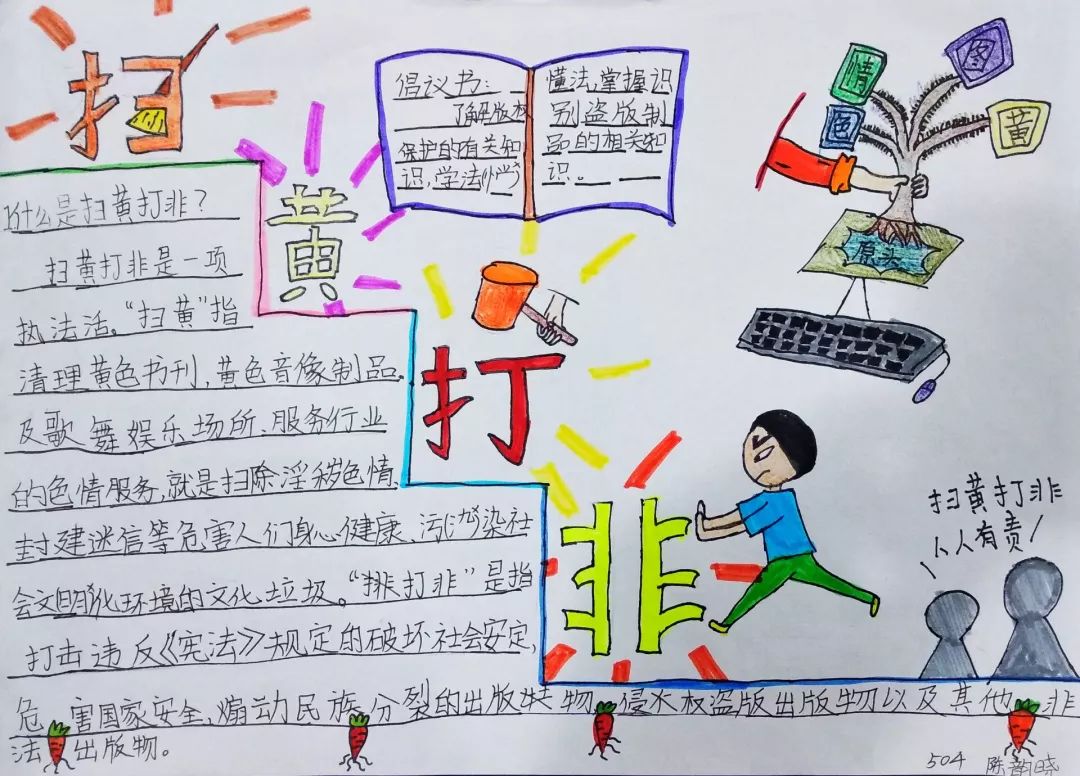 扫
黄
打
非
倡议书：
了解版权
保护的有关知
识，学法
懂法，掌握识
别盗版制
品的相关知
识。
情
色
图
黄
原头
1什么是扫黄打非？
扫黄打非是一项
执法活。“扫黄”指
清理黄色书刊，黄色音像制品
及歌舞娱乐场所、服务行业
的色情服务，就是扫除淫秽色情
封建迷信等危害人们身心健康、污染社
会文明化环境的文化垃圾。“排打非”是指
打击违反《宪法》规定的破坏社会安定，
危害国家安全，煽动民族分裂的出版物，侵权盗版出版物以及其他非
法出版物。
扫黄打非
人人有责！
504